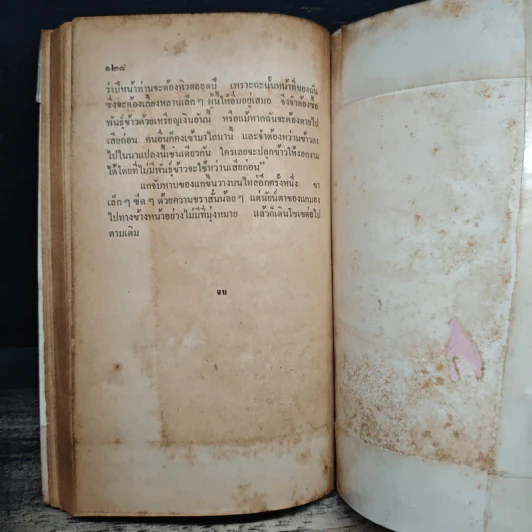 ๑๒๘
ว่าปีหน้าท่านจะต้องหิวตลอดปี เพราะฉะนั้นหน้าที่ของฉัน
ซึ่งจะต้องเลี้ยงหลานเล็ก ๆ ผู้นี้ให้อิ่มอยู่เสมอ จึงจำต้องซื้อ
พันธุ์ข้าวด้วยเหรียญเงินอันนี้ หรือแม้หากฉันจะต้องตายไป
เสียก่อน คนอื่นก็คงเข้ามาไถนานี้ และจำต้องหว่านข้าวลง
ไปในนาแปลงนี้เช่นเดียวกัน ใครเลยจะปลูกข้าวให้งอกงาม
ได้โดยที่ไม่มีพันธุ์ข้าวจะใช้หว่านเสียก่อน”
แกจับหาบของแกขึ้นวางบนไหล่อีกครั้งหนึ่ง ขา
เล็ก ๆ ซีด ๆ ด้วยความชราสั่นน้อย ๆ แต่นัยน์ตาของแกมอง
ไปทางข้างหน้าอย่างไม่มีที่มุ่งหมาย แล้วก็เดินโซเซต่อไป
ตามเดิม
จบ